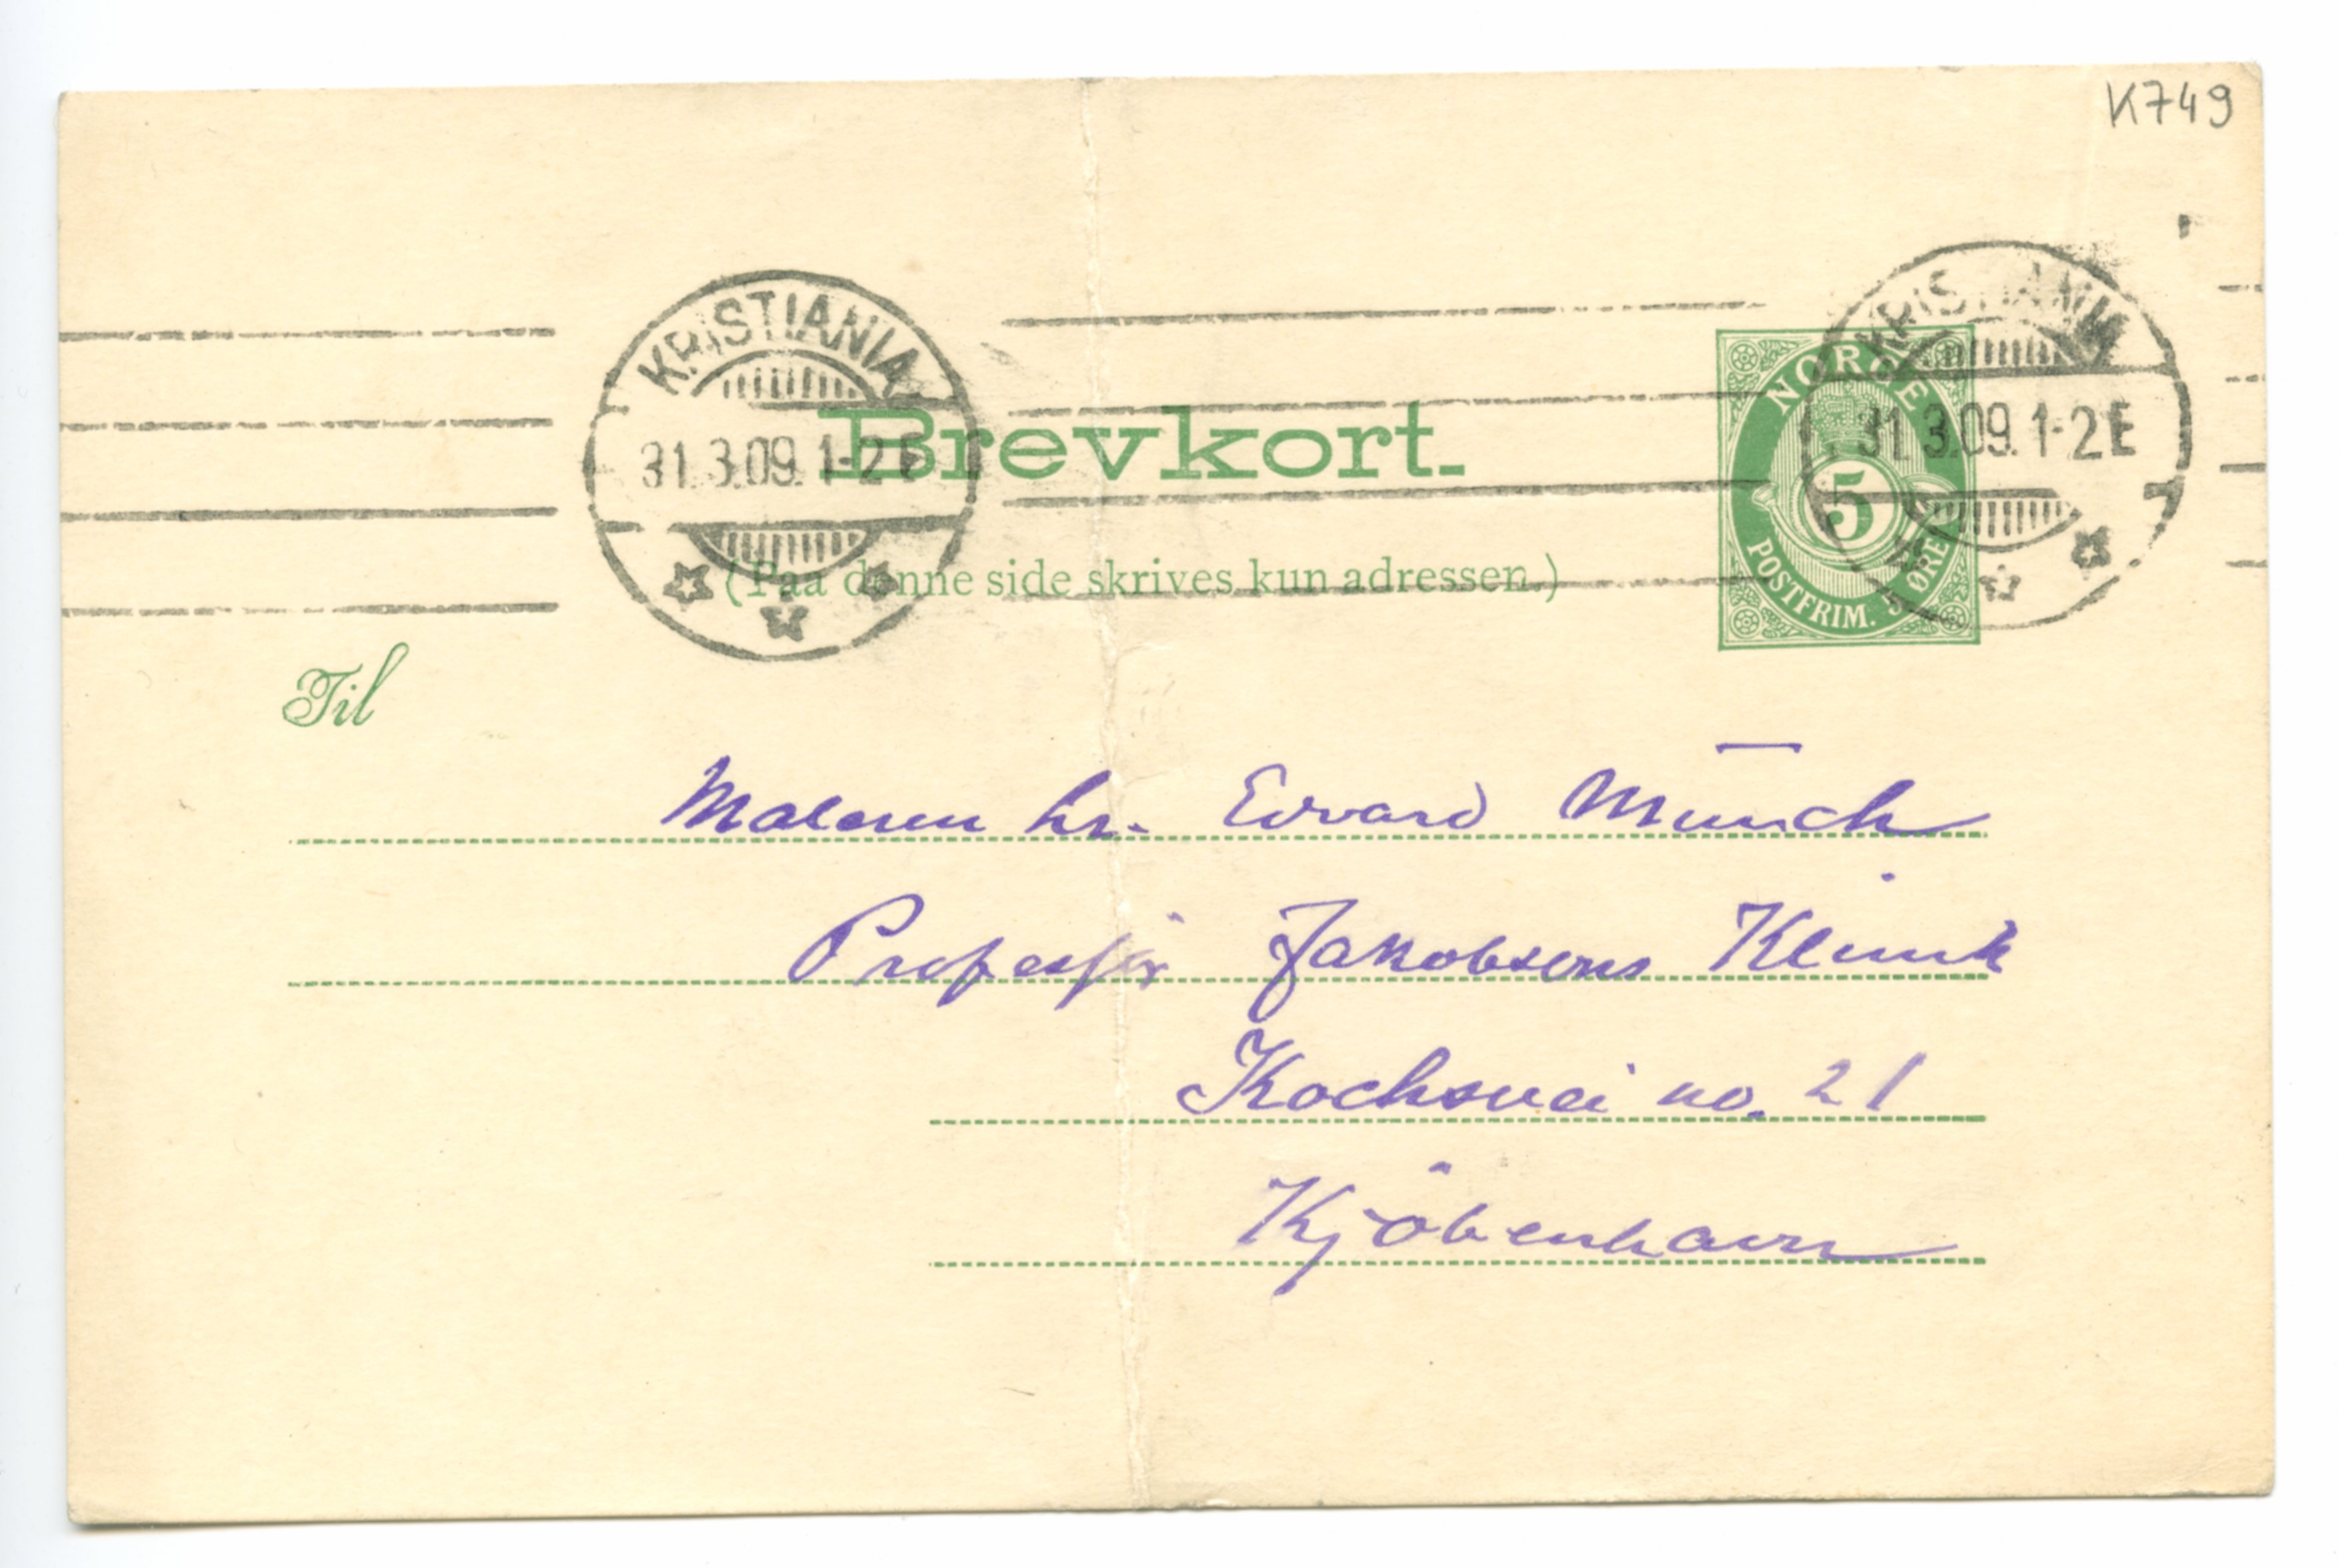 K749
KRISTIANIA
31.3.09.1-2E
Brevkort.
(Paa denne side skrives kun adressen.)
NORGE
5
POSTFRIM. 5 ØRE
KRISTIANIA
31.3.09.1-2E
Til
Maleren hr. Edvard Munch
Professor Jakobsens Klinik
Kochsvei no. 21
Kjöbenhavn